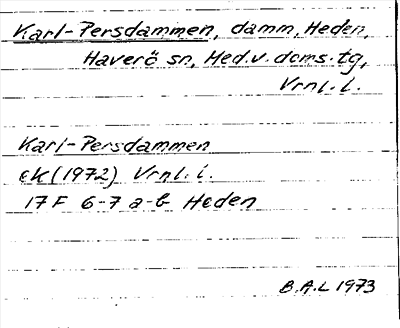 Karl-Persdammen, damm, Heden,
Haverö sn, Hed.v. doms.tg,
Vrnl. l.
Karl-Persdammen
eK (1972) Vrnl. l.
17F 6-7 a-b Heden
B.A.L 1973